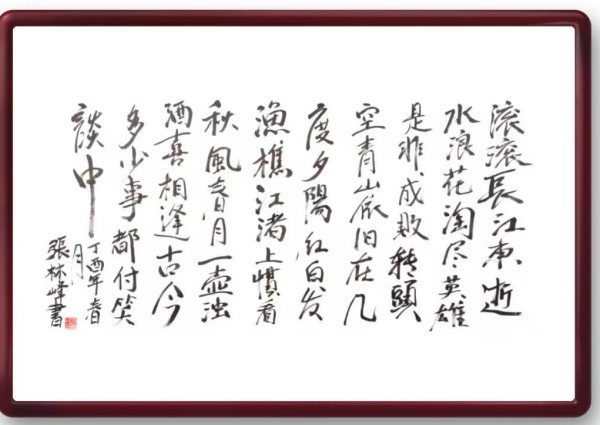 滚滚長江東逝
水浪花淘尽英雄
是非成败转頭
空青山依旧在几
度夕陽红白发
漁樵江渚上慣看
秋風春月一壶浊
酒喜相逢古今
多少事都付笑
談中
丁酉年春月
張林峰書